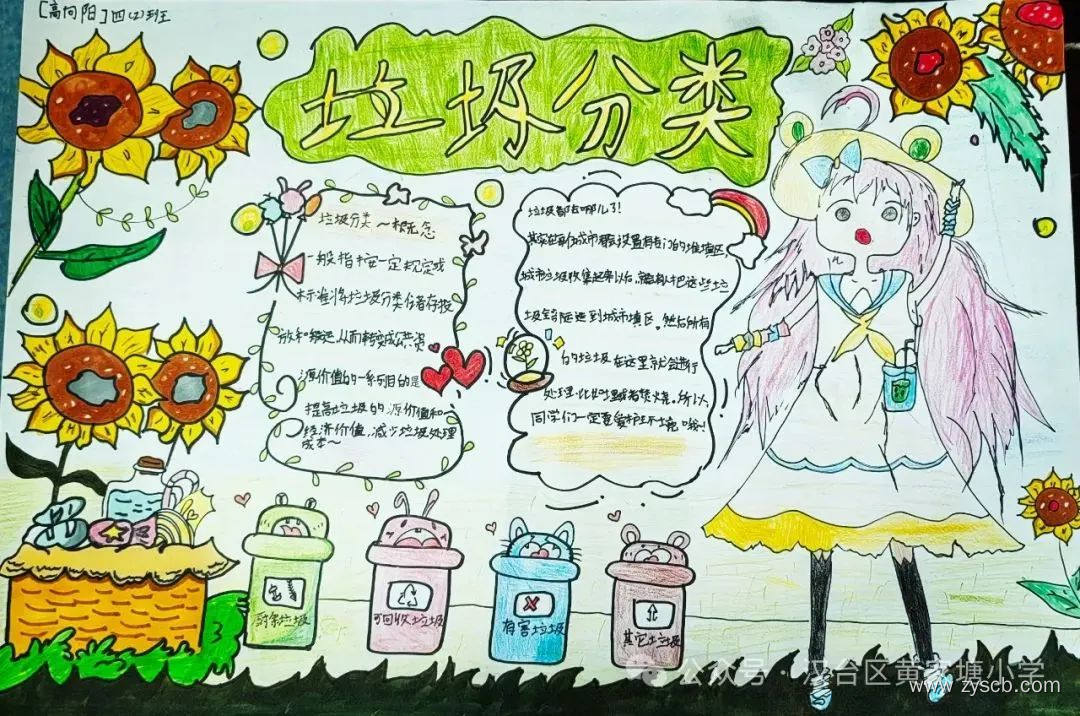 [高向阳]四(2)班
垃圾分类
垃圾分类~概念
一般指按一定规定或
标准将垃圾分类储存投
放和搬运,从而转变成公共资
源价值的一系列目的是
提高垃圾的 源价值和
经济价值,减少垃圾处理
成本~
垃圾都去哪儿了!
城市垃圾收集起来以后,就 人把这些垃
圾 运到城市填区。然后所有
的垃圾在这里就会进行
处理,比如 或者焚烧,所以
同学们一定要爱护环境哦!
厨余垃圾
可回收垃圾
有害垃圾
其它垃圾
公众号·汉台区黄家塘小学
www.zyscb.com